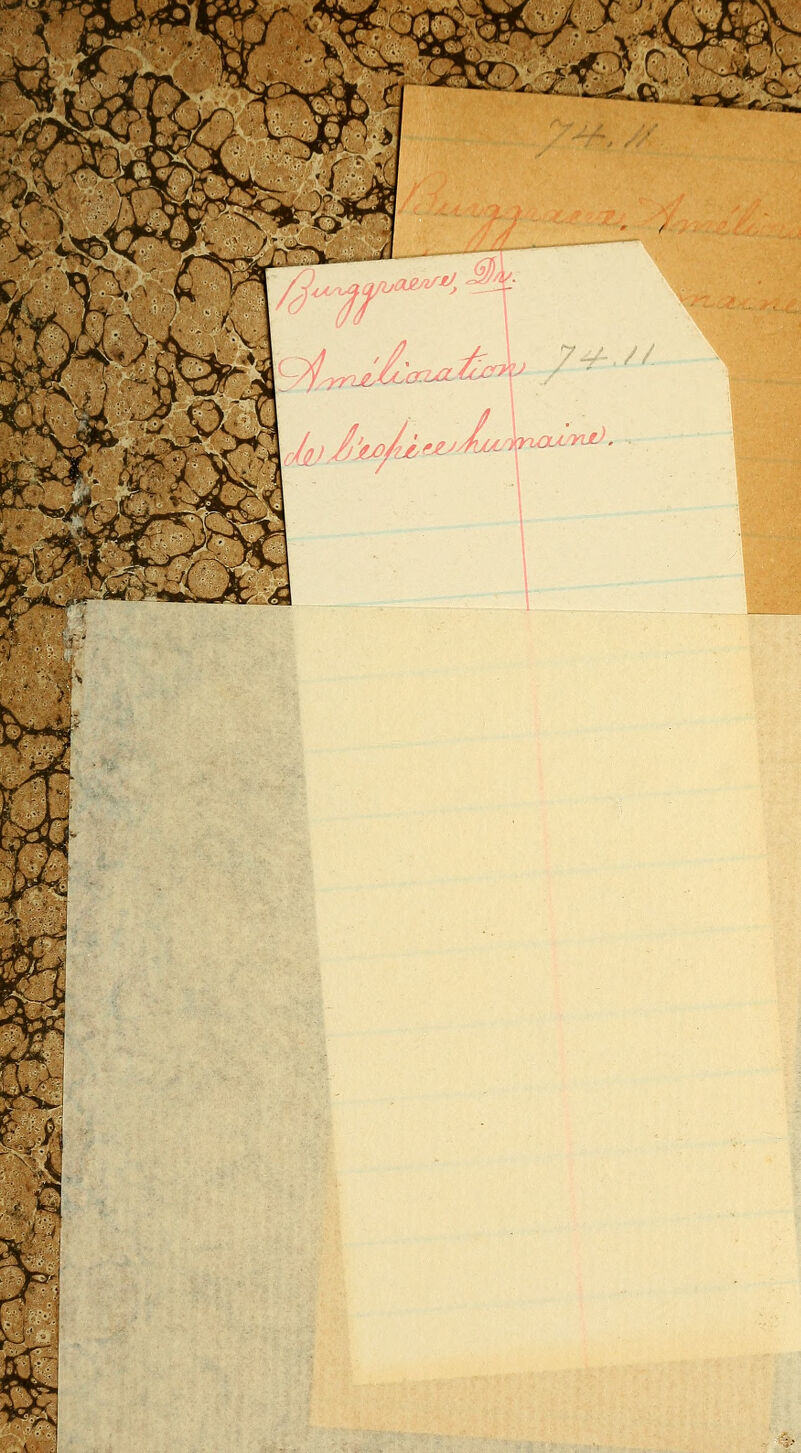 74.11
Burggraeve. Amélio
maine
Burggraeve, Dr.
Amélioration 74.11
de l'espèce humaine.